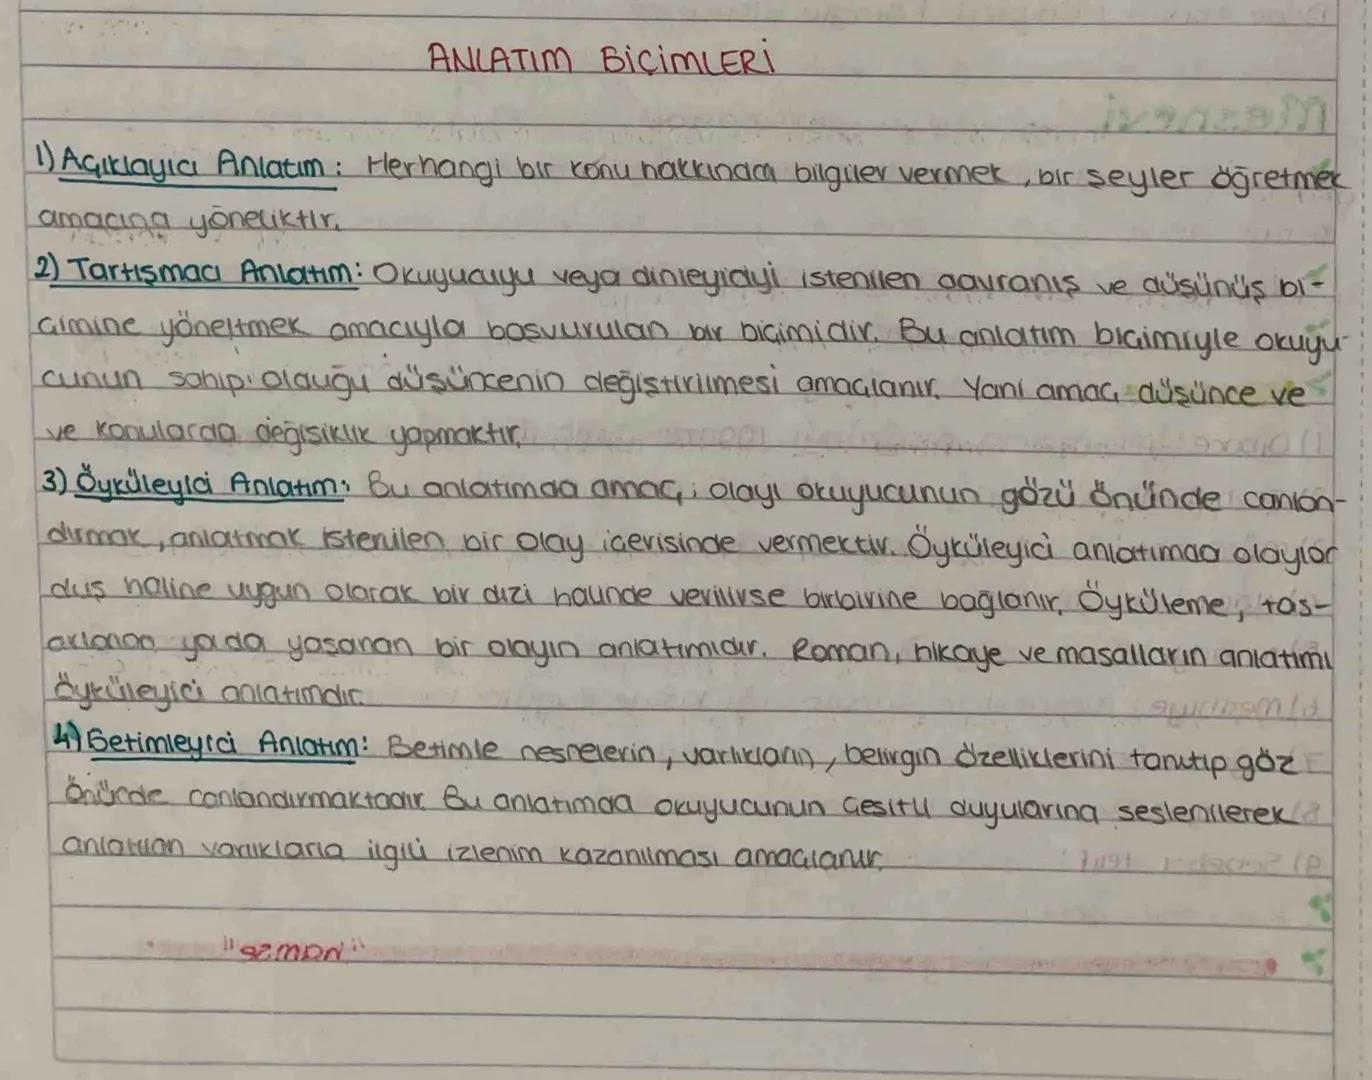 ANLATIM BİÇİMLERİ
1) Açıklayıcı Anlatım: Herhangi bir konu hakkında bilgiler vermek, bir şeyler öğretmek
amacına yöneliktir.
2) Tartışmacı Anlatım: Okuyucuyu veya dinleyiciyi istenilen davranış ve düşünüş bi-
çimine yöneltmek amacıyla başvurulan bir biçimidir. Bu anlatım biçimiyle okuyu-
cunun sahip olduğu düşüncenin değiştirilmesi amaçlanır. Yani amaç düşünce ve
ve konularda değişiklik yapmaktır.
3) Öyküleyici Anlatım: Bu anlatımda amaç; olayı okuyucunun gözü önünde canlan-
dırmak, anlatmak istenilen bir olay içerisinde vermektir. Öyküleyici anlatımda olaylar
duş haline uygun olarak bir dizi halinde verilirse birbirine bağlanır. Öyküleme, tas-
arlanan yada yaşanan bir olayın anlatımıdır. Roman, hikaye ve masalların anlatımı
öyküleyici anlatımdır.
4) Betimleyici Anlatım: Betimle nesnelerin, varlıkların, belirgin özelliklerini tanıtıp göz
önünde canlandırmaktadır. Bu anlatımda okuyucunun çeşitli duyularına seslenilerek
anlatılan varlıklarla ilgili izlenim kazanılması amaçlanır.